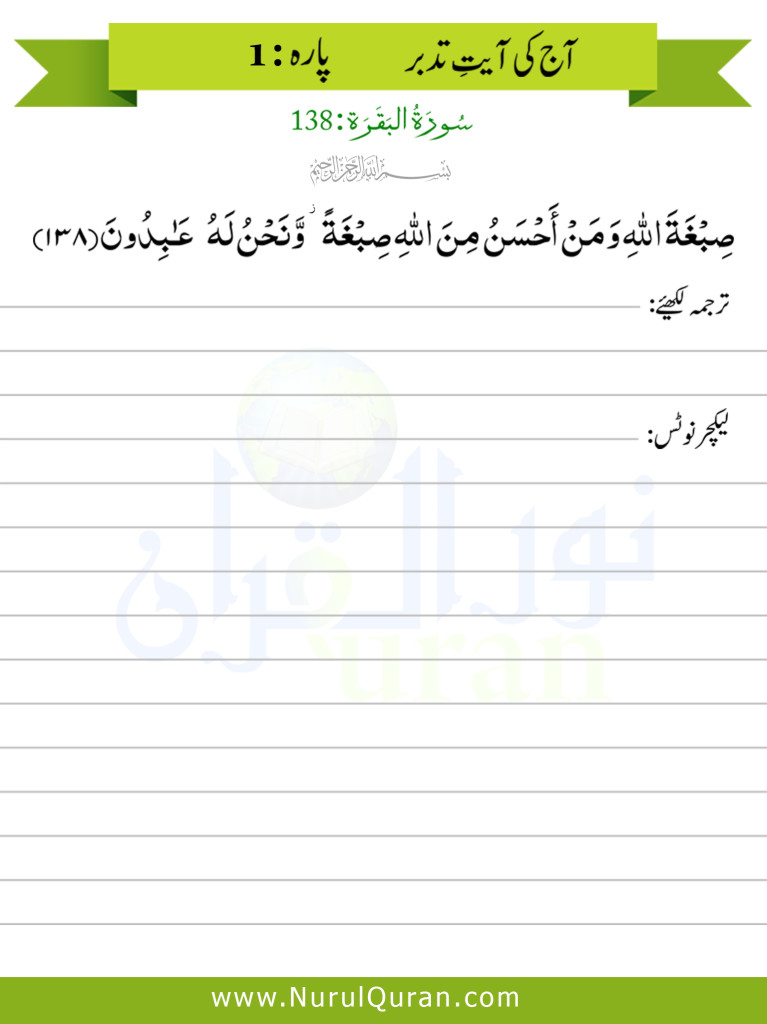 آج کی آیتِ تدبر پارہ : 1
سُورَةُ البَقَرَة: 138
بسم الله الرحمن الرحيم
صِبْغَةَ اللهِ وَمَنْ أَحْسَنُ مِنَ اللهِ صِبْغَةً ۖ وَّنَحْنُ لَهُ عَـٰبِدُونَ (١٣٨)
ترجمہ لکھیئے:
لیکچر نوٹس:
نور القرآن
uran
www.NurulQuran.com